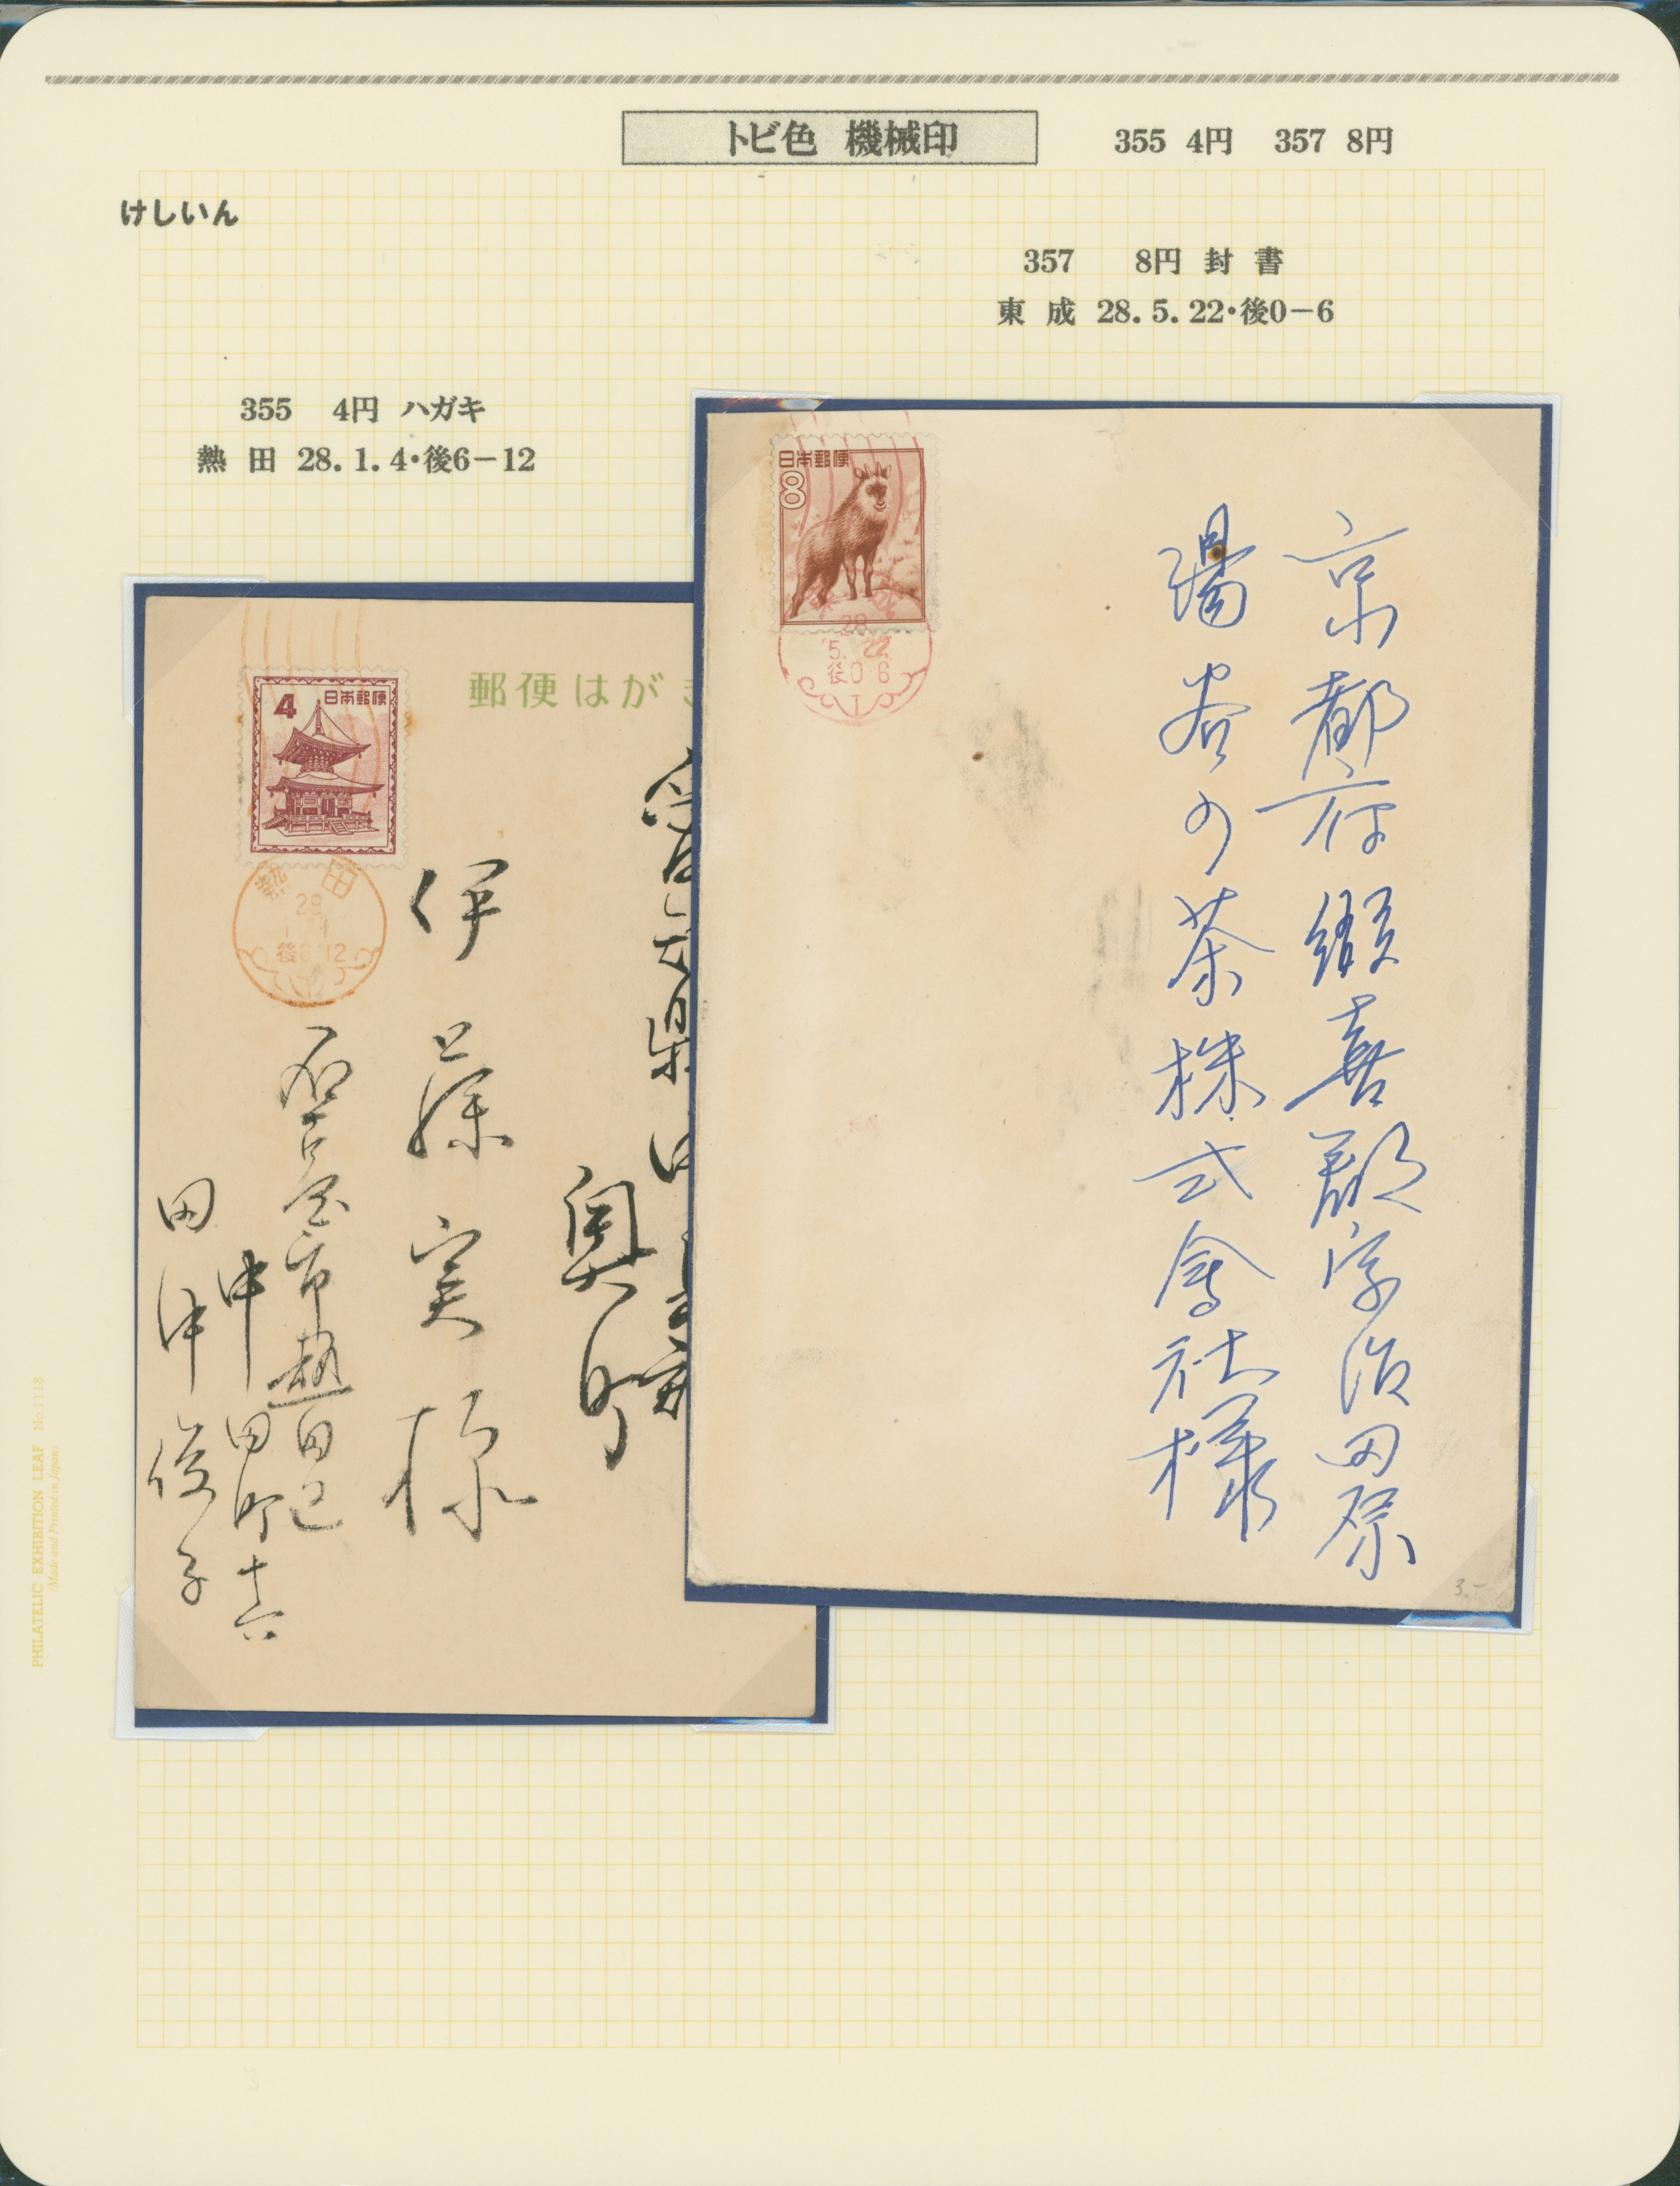 トビ色 機械印 355 4円 357 8円
けしいん
357 8円 封 書
東 成 28.5.22・後0−6
355 4円 ハガキ
熱 田 28.1.4・後6−12
日本郵便
8
28
5. 22
後0 6
京都府綴喜郡宇治田原
湯谷の茶株式會社様
3.-
郵便はが
4 日本郵便
熱 田
28
後6 12
奥町
伊藤実様
名古屋市熱田区
中田町十六
田中俊子
PHILATELIC EXHIBITION LEAF No.1118
(Made and Printed in Japan)
3